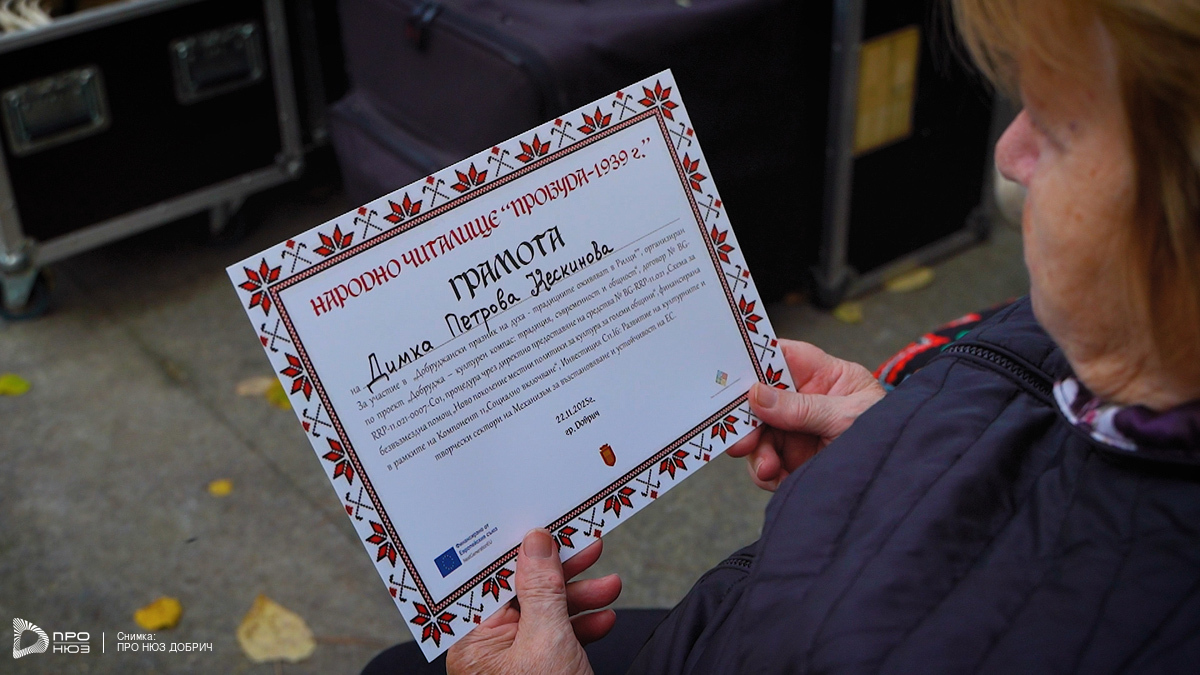 НАРОДНО ЧИТАЛИЩЕ "ПРОБУДА-1939 г."
ГРАМОТА
на Димка Петрова Кескинова
За участие в „Добруджански празник на духа - традициите оживяват в Рилци", организиран
по проект „Добруджа – културен компас: традиция, съвременност и общност", договор № BG-
RRP-11.021-0007-C01, процедура чрез директно предоставяне на средства № BG-RRP-11.021 „Схема за
безвъзмездна помощ „Ново поколение местни политики за култура за големи общини" финансирана
в рамките на Компонент 11„Социално включване", Инвестиция C11.I6: Развитие на културните и
творчески сектори на Механизъм за възстановяване и устойчивост на ЕС.
22.11.2025г.
гр. Добрич
Финансирано от
Европейския съюз
NextGenerationEU
ПРО
НЮЗ
Снимка:
ПРО НЮЗ ДОБРИЧ